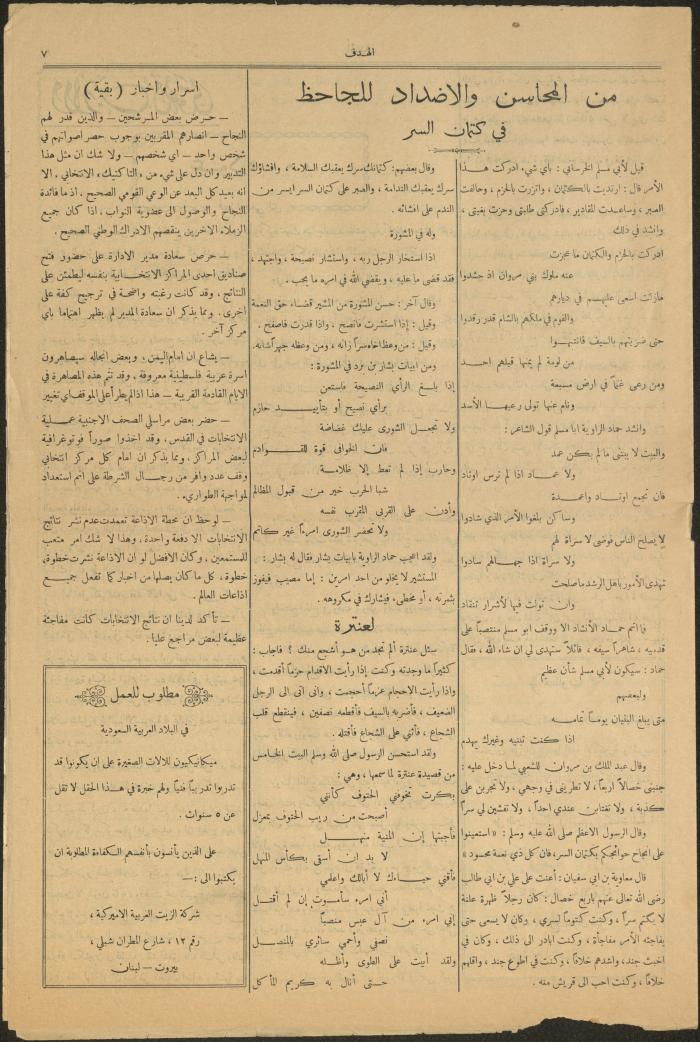 الهدف
٧
من المحاسن والاضداد للجاحظ
في كتمان السر
قيل لأبي مسلم الخرساني : بأي شيء ادركت هذا
الأمر قال : ارتديت بالكتمان ، واتزرت بالحزم ، وحالفت
الصبر ، وساعدت المقادير ، فادركتي طلبتي وحزت بغيتي ،
وانشد في ذلك
ادركت بالحزم والكتمان ما عجزت
عنه ملوك بني مروان اذ حشدوا
مازلت اسعى عليهم في ديارهم
والقوم في ملكهم بالشام قدر رقدوا
حتى ضربتهم بالسيف فانتبهوا
من نومة لم ينمها قبلهم احد
ومن رعى غنماً في ارض مسبعة
ونام عنها تولى رعيها الأسد
وانشد حماد الراوية ابا مسلم قول الشاعر :
والبيت لا يبتنى ما لم يكن عمد
ولا عماد اذا لم ترس اوتاد
فان تجمع اوتاد واعمدة
وساكن بلغوا الأمر الذي شادوا
لا يصلح الناس فوضى لا سراة لهم
ولا سراة اذا جهالهم سادوا
تهدى الأمور باهل الرشد ما صلحت
وان تولت فيها لأشرار تنقاد
فما اتم حماد الأنشاد الا ووقف ابو مسلم منتصباً على
قدميه ، شاهراً سيفه ، قائلاً ستهدى لي ان شاء الله ، فقال
حماد : سيكون لأبي مسلم شأن عظيم
ولبعضهم
متى يبلغ البنيان يوماً تمامه
اذا كنت تبنيه وغيرك يهدم
وقال عبد الملك بن مروان للشعبي لما دخل عليه :
جنبني خصالاً اربعاً ، لا تطريني في وجهي ، ولا تجربن علي
كذبة ، ولا تغتابن عندي احداً ، ولا تفشين لي سراً
وقال الرسول الاعظم صلى الله عليه وسلم : « استعينوا
على انجاح حوائجكم بكتمان السر، فان كل ذي نعمة محسود »
قال معاوية بن ابي سفيان : أعنت على علي بن ابي طالب
رضى الله تعالى عنهم باربع خصال : كان رجلاً ظهرة علنة
لا يكتم سراً ، وكنت كتوماً لسري ، وكان لا يسعى حتى
يفاجئه الأمر مفاجأة ، وكنت ابادر الى ذلك ، وكان في
اخبث جند ، واشدهم خلافاً ، وكنت في اطوع جند ، واقلهم
خلافاً ، وكنت احب الى قريش منه .
وقال بعضهم : كتمانك سرك يعقبك السلامة ، وافشاؤك
سرك يعقبك الندامة ، والصبر على كتمان السر ايسر من
الندم على افشائه .
وله في المشورة
اذا استخار الرجل ربه ، واستشار نصيحة ، واجتهد ،
فقد قضى ما عليه ، ويقضي الله في امره ما يحب .
وقال آخر : حسن المشورة من المشير قضاء حق النعمة
وقيل : إذا استشرت فانصح ، واذا قدرت فاصفح .
وقيل : من وعظ اخاه سراً زانه ، ومن وعظه جهراً شانه .
ومن ابيات بشار بن برد في المشورة :
إذا بلغ الرأي النصيحة فاستعن
برأي نصيح أو بتأييد حازم
ولا تجعل الشورى عليك غضاضة
فان الخوافى قوة للقوادم
وحارب إذا لم تعط إلا ظلامة
شبا الحرب خير من قبول المظالم
وأدن على القربى المقرب نفسه
ولا تحضر الشورى امرءاً غير كاتم
ولقد اعجب حماد الراوية بابيات بشار فقال له بشار :
المستشير لا يخلو من احد امرين : إما مصيب فيفوز
بثمرته ، أو مخطىء فيشارك في مكروهه .
لعنترة
سئل عنترة ألم تجد من هو أشجع منك ؟ فاجاب :
كثيراً ما وجدته وكنت إذا رأيت الاقدام حزماً أقدمت ،
واذا رأيت الاحجام عزماً أحجمت ، وانى اتى الى الرجل
الضعيف ، فأضربه بالسيف فأقطعه نصفين ، فينقطع قلب
الشجاع ، فأثني على الشجاع فأقتله .
ولقد استحسن الرسول صلى الله وسلم البيت الخامس
من قصيدة عنترة لما سمعها ، وهي :
بكرت تخوفني الحتوف كأنني
أصبحت من ريب الحتوف بمعزل
فأجبتها إن المنية منهل
لا بد ان أسقى بكأس المنهل
فأقني حياءك لا أبالك واعلمي
أني امرء سأموت إن لم أقتل
إني امرء من آل عبس منصباً
نصفي وأحمي سائري بالمنصل
ولقد أبيت على الطوى وأظله
حتى أنال به كريم المأكل
اسرار واخبار ( بقية )
— حرض بعض المرشحين — والذين قدر لهم
النجاح — انصارهم المقربين بوجوب حصر اصواتهم في
شخص واحد — اي شخصهم — ولا شك ان مثل هذا
التدبير وان دل على شيء من ، التاكتيك ، الانتخابي ، الا
انه بعيد كل البعد عن الوعي القومي الصحيح . اذ ما فائدة
النجاح والوصول الى عضوية النواب ، اذا كان جميع
الزملاء الاخرين ينقصهم الادراك الوطني الصحيح .
— حرص سعادة مدير الادارة على حضور فتح
صناديق احدى المراكز الانتخابية بنفسه ليطمئن على
النتائج ، وقد كانت رغبته واضحة في ترجيح كفة على
اخرى . ومما يذكر ان سعادة المدير لم يظهر اهتماما باي
مركز آخر .
— يشاع ان امام اليمن ، وبعض انجاله سيصاهرون
اسرة عربية فلسطينية معروفة ، وقد تتم هذه المصاهرة في
الايام القادمة القريبة — هذا اذا لم يطرأ على الموقف اي تغيير
— حضر بعض مراسلي الصحف الاجنبية عملية
الانتخابات في القدس ، وقد اخذوا صوراً فوتوغرافية
لبعض المراكز ، ومما يذكر ان امام كل مركز انتخابي
وقف عدد وافر من رجال الشرطة على اتم استعداد
لمواجهة الطواريء .
— لوحظ ان محطة الاذاعة تعمدت عدم نشر نتائج
الانتخابات الا دفعة واحدة ، وهذا لا شك امر متعب
للمستمعين ، وكان الافضل لو ان الاذاعة نشرت خطوة ،
خطوة ، كل ما كان يصلها من اخبار كما تفعل جميع
اذاعات العالم .
— تأكد لدينا ان نتائج الانتخابات كانت مفاجئة
عظيمة لبعض مراجع عليا .
مطلوب للعمل
في البلاد العربية السعودية
ميكانيكيون للالات الصغيرة على ان يكونوا قد
تدربوا تدريباً فنياً ولهم خبرة في هذا الحقل لا تقل
عن ٥ سنوات .
على الذين يأنسون بأنفسهم الكفاءة المطلوبة ان
يكتبوا الى :—
شركة الزيت العربية الاميركية ،
رقم ١٢ ، شارع المطران شبلي ،
بيروت — لبنان